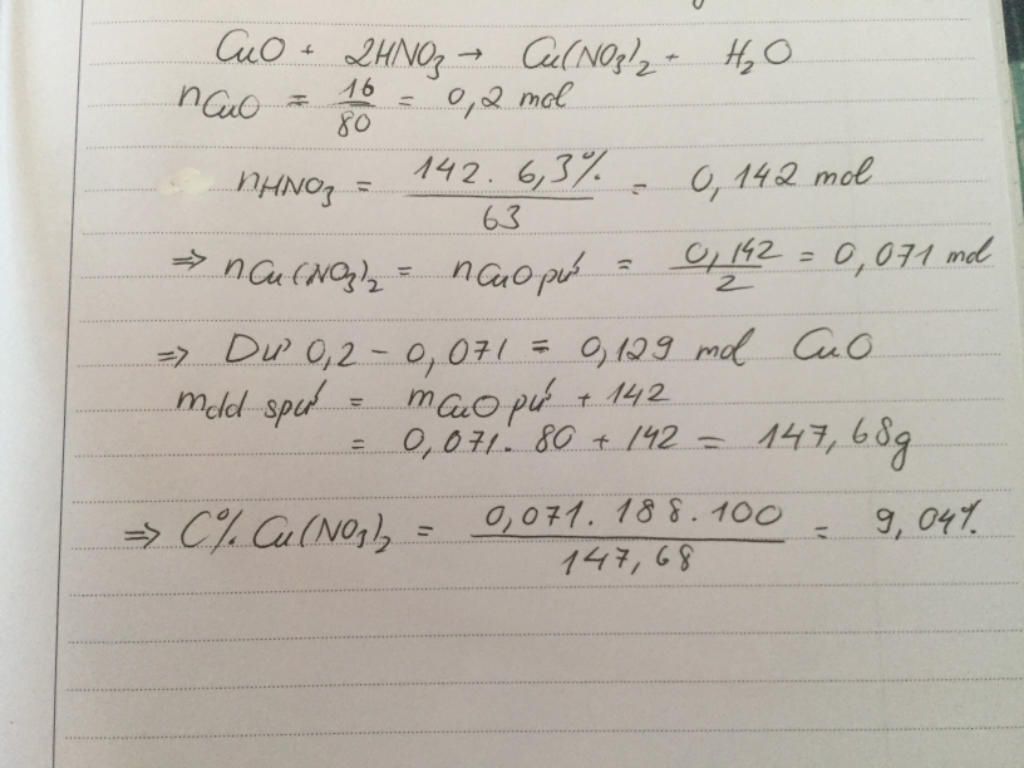 CuO + 2HNO₃ → Cu(NO₃)₂ + H₂O
nCuO = 16/80 = 0,2 mol
nHNO₃ = 142 . 6,3% / 63 = 0,142 mol
⇒ nCu(NO₃)₂ = nCuO pứ = 0,142/2 = 0,071 mol
⇒ Dư 0,2 - 0,071 = 0,129 mol CuO
mdd spứ = mCuO pứ + 142
= 0,071 . 80 + 142 = 147,68g
⇒ C% Cu(NO₃)₂ = 0,071 . 188 . 100 / 147,68 = 9,04%